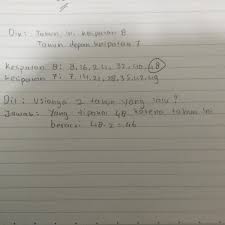 Dik: Tahun ini kelipatan 8
Tahun depan kelipatan 7
Kelipatan 8: 8, 16, 24, 32, 40, 48
Kelipatan 7: 7, 14, 21, 28, 35, 42, 49
Dit: Usianya 2 tahun yang lalu ?
Jawab: Yang dipakai 48 karena tahun ini
berarti 48 - 2 = 46